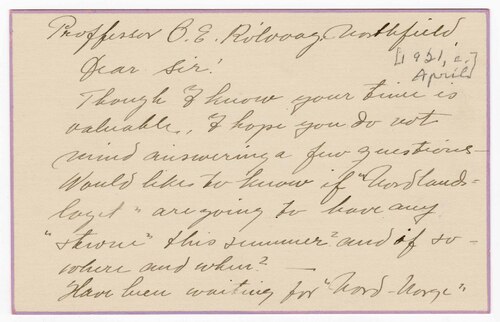 Proffessor O. E. Rölvaag, Northfield
Dear Sir!
[1921, c.
April]
Though I know your time is
valuable, I hope you do not
mind answering a few questions–
Would like to know if "Nordlands-
laget" are going to have any
"stevne" this summer? and if so –
where and when? –
Have been waiting for "Nord-Norge"